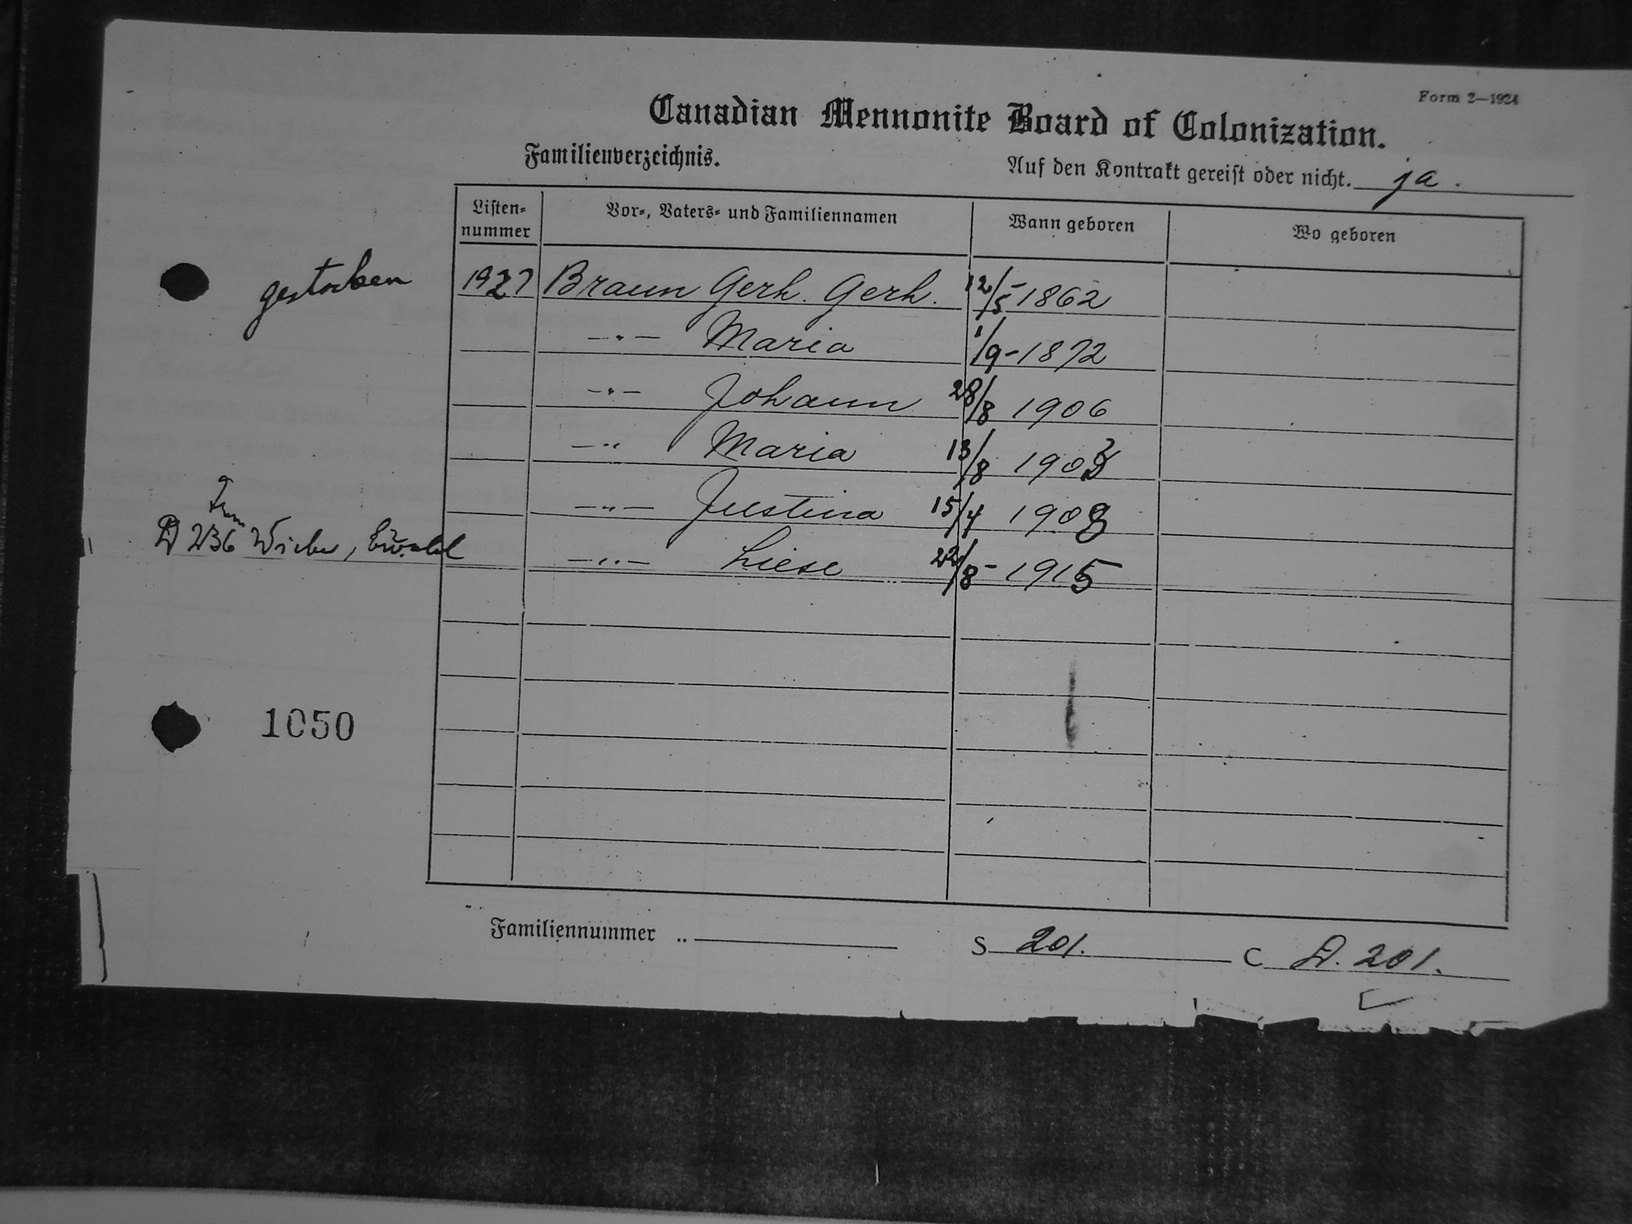 Form 2—1924
Canadian Mennonite Board of Colonization.
Familienverzeichnis.
Auf den Kontrakt gereist oder nicht. ja.
Listen-
nummer
Vor-, Vaters- und Familiennamen
Wann geboren
Wo geboren
gestorben 1927 Braun Gerh. Gerh. 12/5 1862
-"- Maria 1/9-1872
-"- Johann 28/8 1906
-"- Maria 13/8 1903
-"- Justina 15/4 1908
D 236 Wiebe, Ewald -"- Liese 22/8-1915
1050
Familiennummer .. S 201. C D. 201.